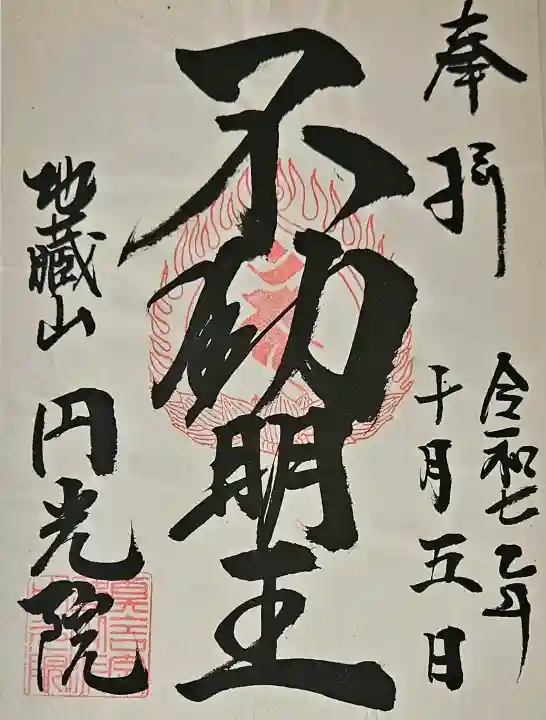 奉拝
令和七乙年
十月五日
不動明王
地蔵山
円光院